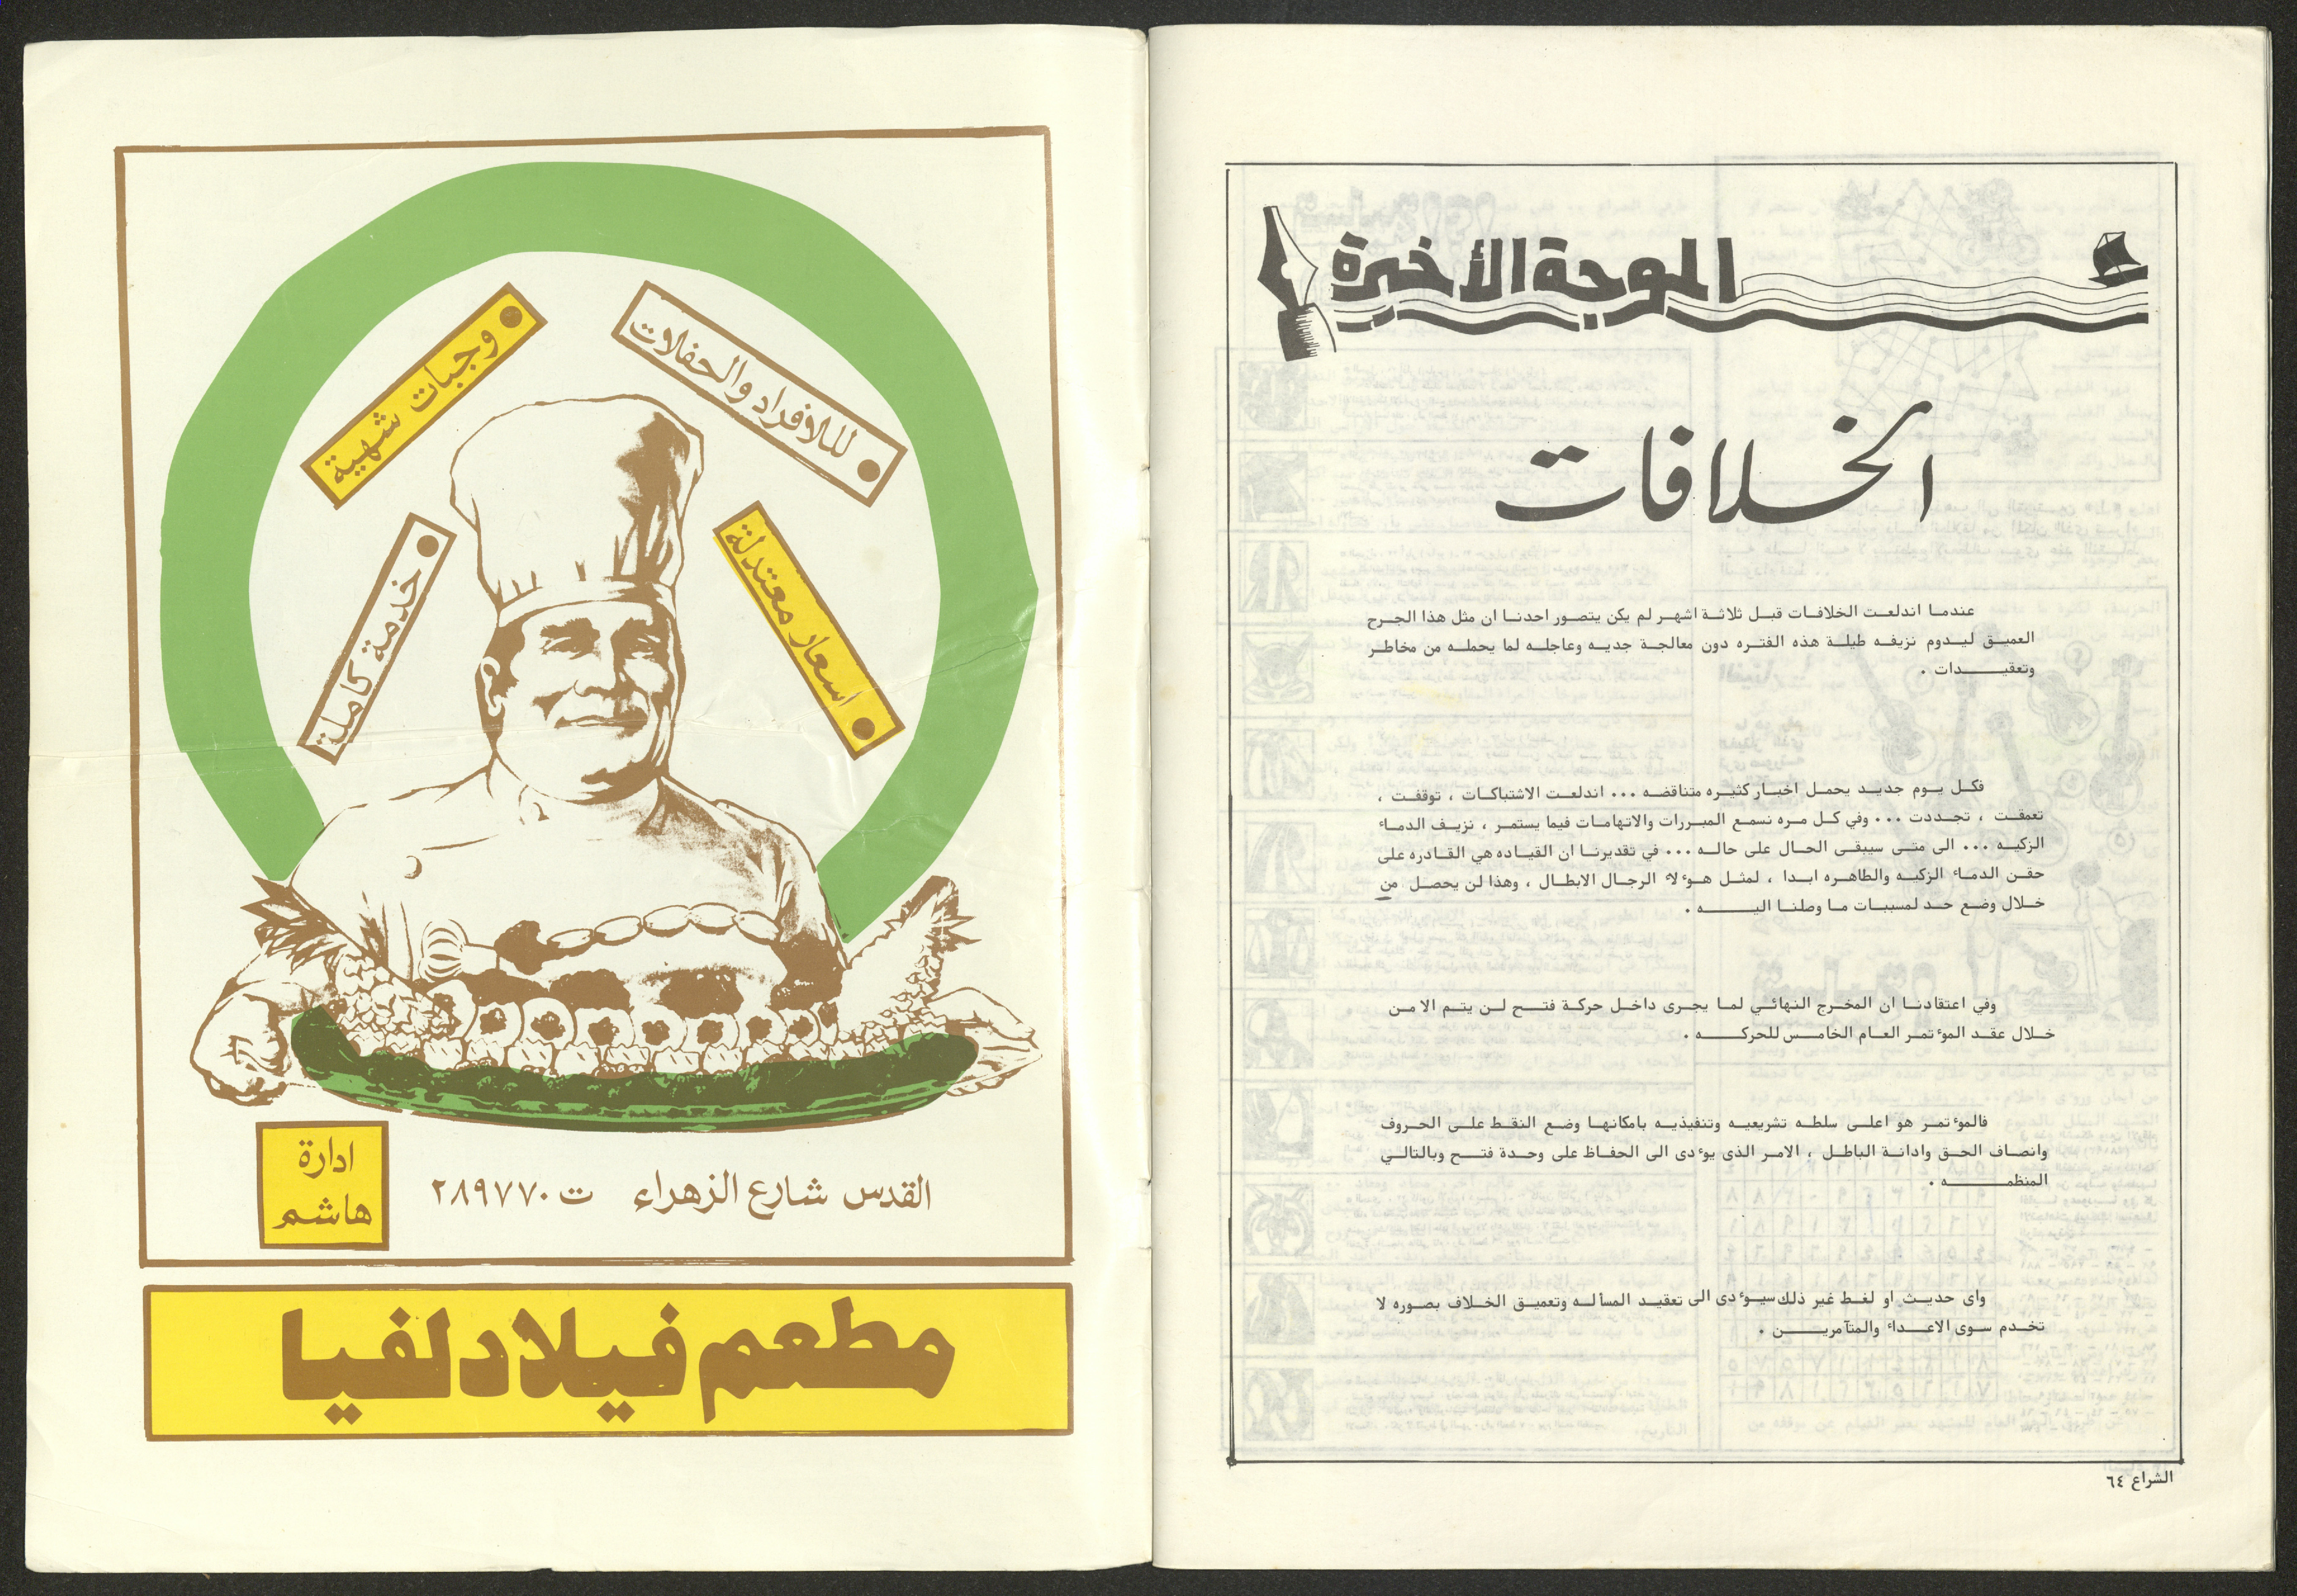 الموجة الأخيرة
الخلافات
عندما اندلعت الخلافات قبل ثلاثة اشهر لم يكن يتصور احدنا ان مثل هذا الجرح
العميق ليدوم نزيفه طيلة هذه الفتره دون معالجة جديه وعاجله لما يحمله من مخاطر
وتعقيدات .
فكل يوم جديد يحمل اخبار كثيره متناقضه ... اندلعت الاشتباكات ، توقفت ،
تعمقت ، تجددت ... وفي كل مره نسمع المبررات والاتهامات فيما يستمر ، نزيف الدماء
الزكيه ... الى متى سيبقى الحال على حاله ... في تقديرنا ان القياده هي القادره على
حقن الدماء الزكيه والطاهره ابدا ، لمثل هوءلاء الرجال الابطال ، وهذا لن يحصل من
خلال وضع حد لمسببات ما وصلنا اليه .
وفي اعتقادنا ان المخرج النهائي لما يجرى داخل حركة فتح لن يتم الا من
خلال عقد الموءتمر العام الخامس للحركه .
فالموءتمر هو اعلى سلطه تشريعيه وتنفيذيه بامكانها وضع النقط على الحروف
وانصاف الحق وادانة الباطل ، الامر الذى يوءدى الى الحفاظ على وحدة فتح وبالتالي
المنظمه .
واى حديث او لغط غير ذلك سيوءدى الى تعقيد المسأله وتعميق الخلاف بصوره لا
تخدم سوى الاعداء والمتآمرين .
الشراع ٦٤
وجبات شهية
للافراد والحفلات
خدمة كاملة
اسعار معتدلة
ادارة
هاشم
القدس شارع الزهراء ت ٢٨٩٧٧٠
مطعم فيلادلفيا